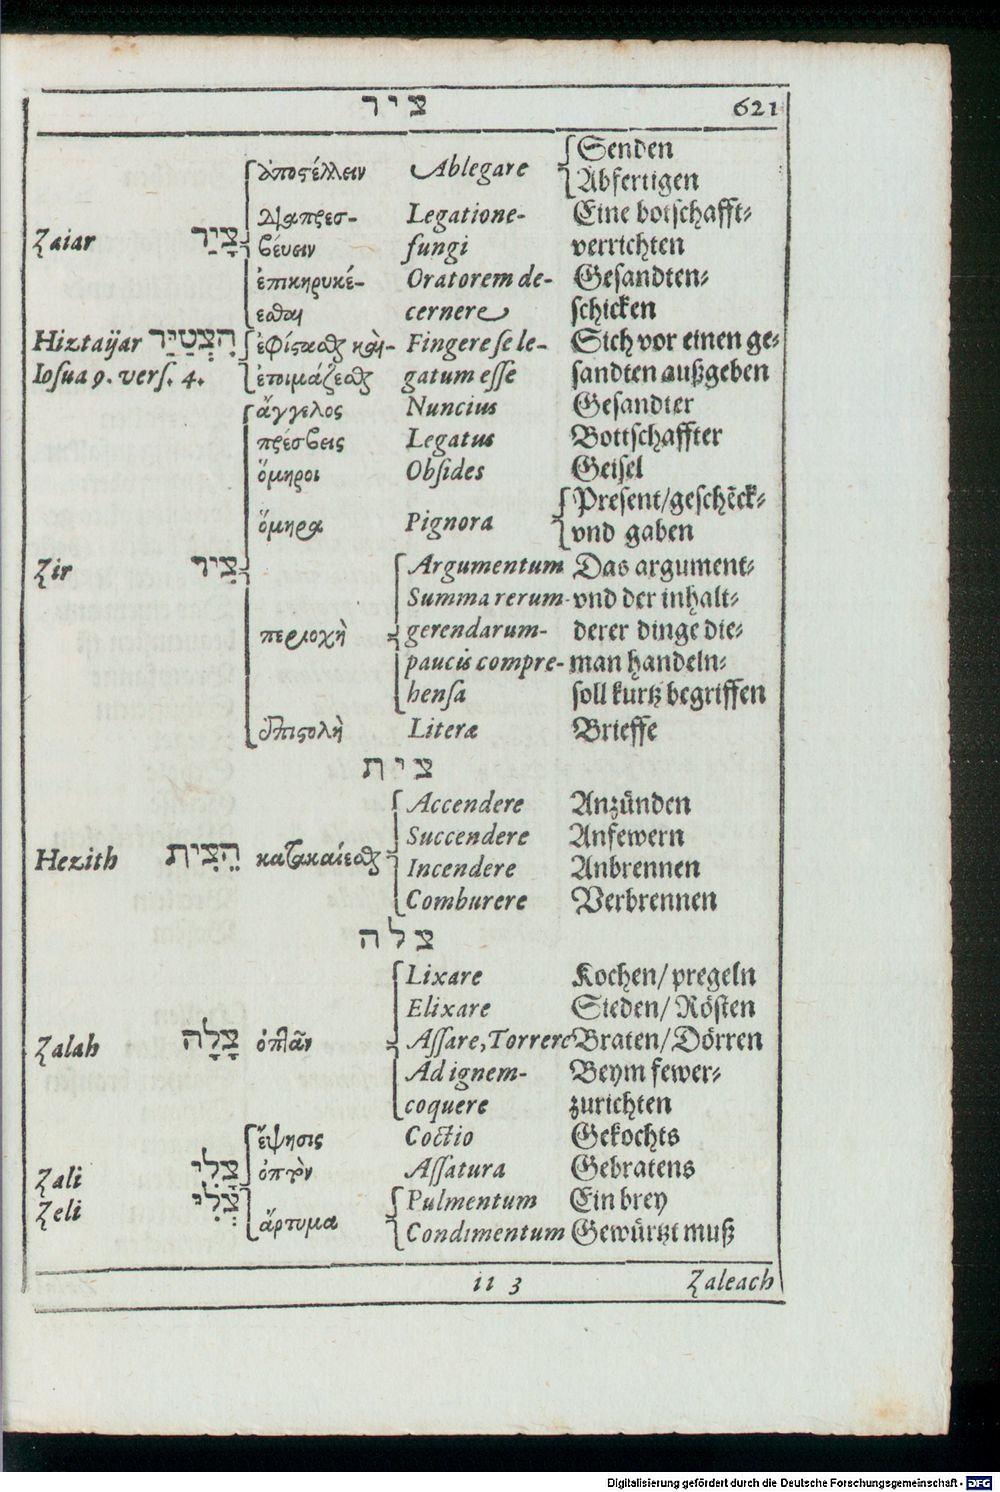 ציר 621
ἀποστέλλειν Ablegare Senden
Abfertigen
διαπρεσ- Legatione- Eine botschafft-
Zaiar צָיַר βεύειν fungi verrichten
ἐπικηρυκέ- Oratorem de- Gesandten-
εσθαι cernere schicken
Hiztaÿar הִצְטַיַּר ἐφίστασθαι καὶ- Fingere se le- Sich vor einen ge-
Iosua 9. vers. 4. ἑτοιμάζεσθαι gatum esse sandten außgeben
ἄγγελος Nuncius Gesandter
πρέσβεις Legatus Bottschaffter
ὅμηροι Obsides Geisel
ὅμηρα Pignora Present/geschẽck-
vnd gaben
Zir צִיר Argumentum Das argument-
Summa rerum- vnd der inhalt-
περιοχὴ gerendarum- derer dinge die-
paucis compre- man handeln-
hensa soll kurtz begriffen
ἐπιστολὴ Literæ Brieffe
צית
Accendere Anzünden
Succendere Anfewern
Hezith הֵצִית κατακαίεσθαι Incendere Anbrennen
Comburere Verbrennen
צלה
Lixare Kochen/ pregeln
Elixare Sieden/ Rösten
Zalah צָלָה ὀπτᾶν Assare, Torrere Braten/ Dörren
Ad ignem- Beym fewer-
coquere zurichten
ἕψησις Coctio Gekochts
Zali צָלִי ὀπτὸν Assatura Gebratens
Zeli צְלִי Pulmentum Ein brey
ἄρτυμα Condimentum Gewürtzt muß
ii 3 Zaleach
Digitalisierung gefördert durch die Deutsche Forschungsgemeinschaft - DFG